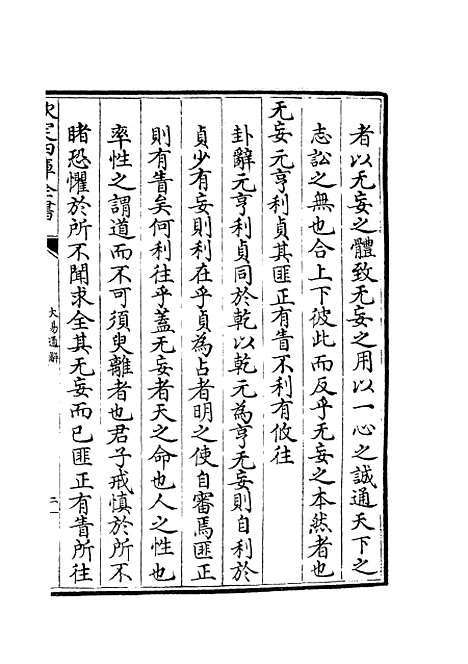 者以无妄之體致无妄之用以一心之誠通天下之
志訟之無也合上下彼此而反乎无妄之本然者也
无妄元亨利貞其匪正有眚不利有攸往
卦辭元亨利貞同於乾以乾元為亨无妄則自利於
貞少有妄則利在乎貞為占者明之使自審焉匪正
則有眚矣何利往乎蓋无妄者天之命也人之性也
率性之謂道而不可須臾離者也君子戒慎於所不
睹恐懼於所不聞求全其无妄而已匪正有眚所往
欽定四庫全書
大易通解